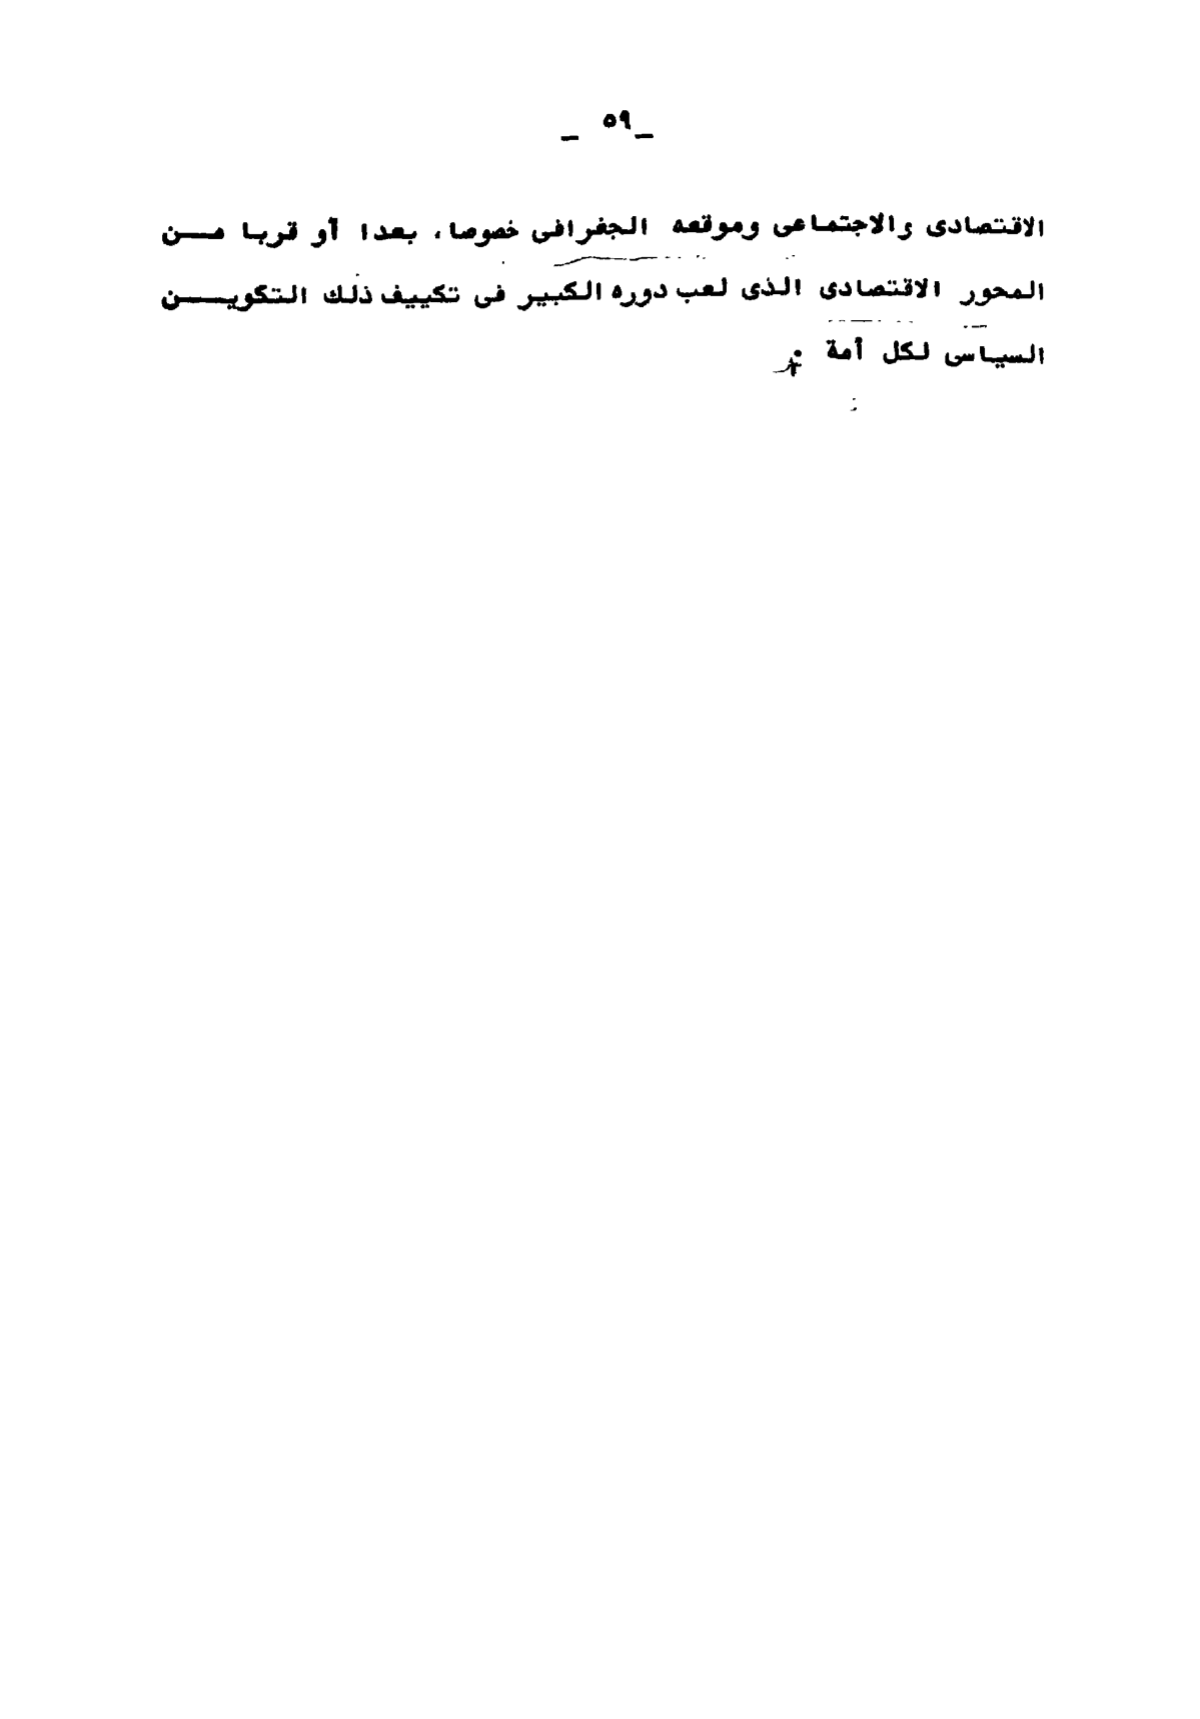 _ ٥٩ _
الاقتصادى والاجتماعى وموقعه الجغرافى خصوصا، بعدا أو قربا مــن
المحور الاقتصادى الذى لعب دوره الكبير فى تكييف ذلك التكويــن
السياسى لكل أمة